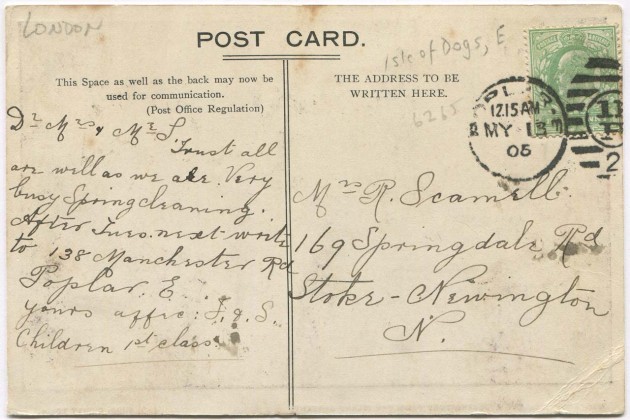 LONDON
POST CARD.
Isle of Dogs, E
6265
This Space as well as the back may now be
used for communication.
(Post Office Regulation)
THE ADDRESS TO BE
WRITTEN HERE.
POPLAR
12.15 AM
MY 13
05
11
2
Dr Mrs & Mr S
Trust all
are well as we are. Very
busy Springcleaning.
After Tues. next write
to 138 Manchester Rd
Poplar. E.
Yours affec: F. & S.
Children 1st class.
Mrs R. Scamell
169 Springdale Rd
Stoke-Newington
N.